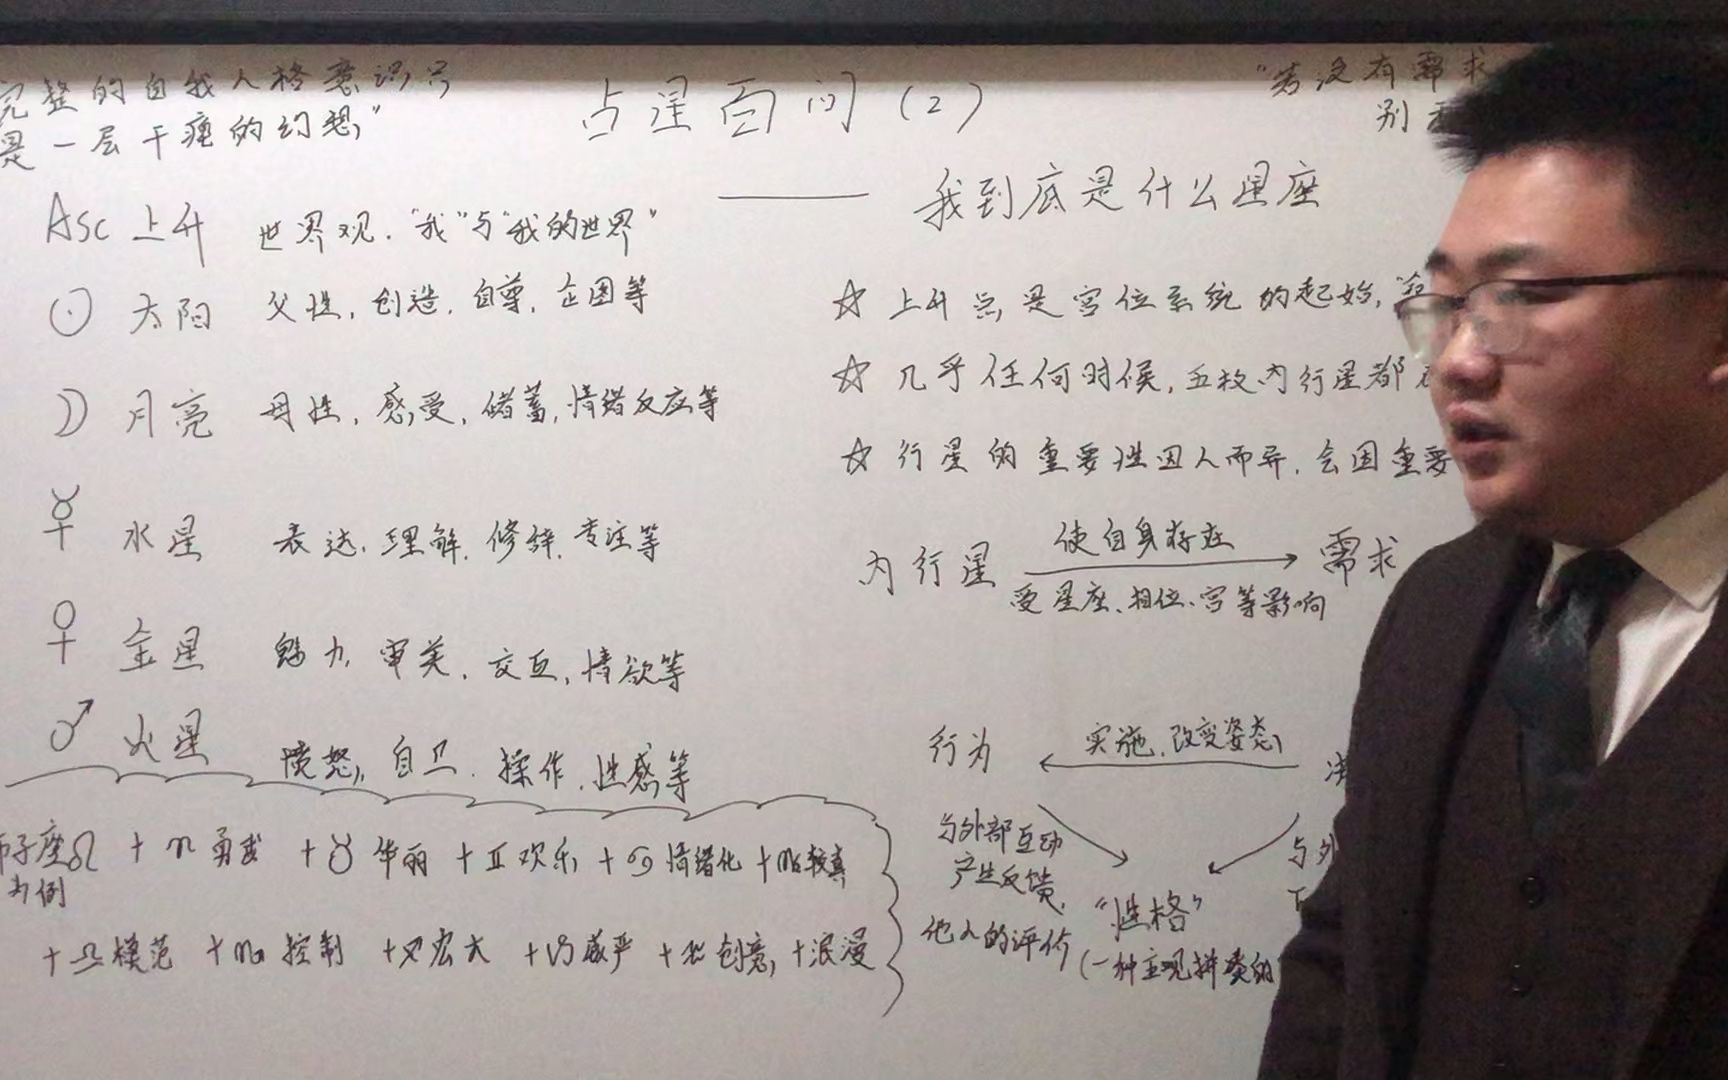 完整的自我人格意识只
是一层干瘪的幻想"
占星百问(2)
"若没有需求
别
—— 我到底是什么星座
Asc 上升 世界观."我"与"我的世界"
☉ 太阳 父性,创造,自尊,企图等
☽ 月亮 母性,感受,储蓄,情绪反应等
☿ 水星 表达,理解,修辞,专注等
♀ 金星 魅力,审美,交互,情欲等
♂ 火星 愤怒,自卫,操作,性感等
☆ 上升点是宫位系统的起始,
☆ 几乎任何时候,五枚内行星都
☆ 行星的重要性因人而异,会因重要
内行星 使自身存在 需求
受星座、相位、宫等影响
行为 实施,改变姿态
与外部互动
产生反馈,
他人的评价
与外
"性格"
(一种主观拼凑的
狮子座♌ + ♈勇武 + ♉华丽 + ♊欢乐 + ♋情绪化 + ♍较真
为例
+ ♎模范 + ♏控制 + ♐宏大 + ♑威严 + ♒创意 + 浪漫